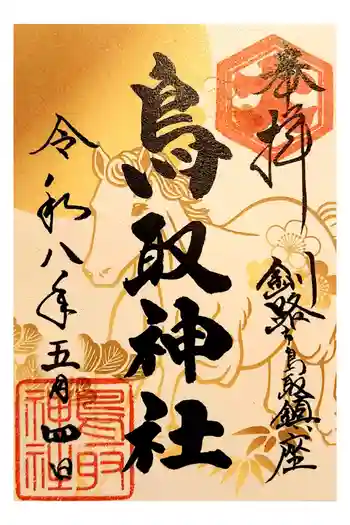 奉拝
釧路鳥取鎮座
鳥取神社
令和八年五月四日
鳥取
神社